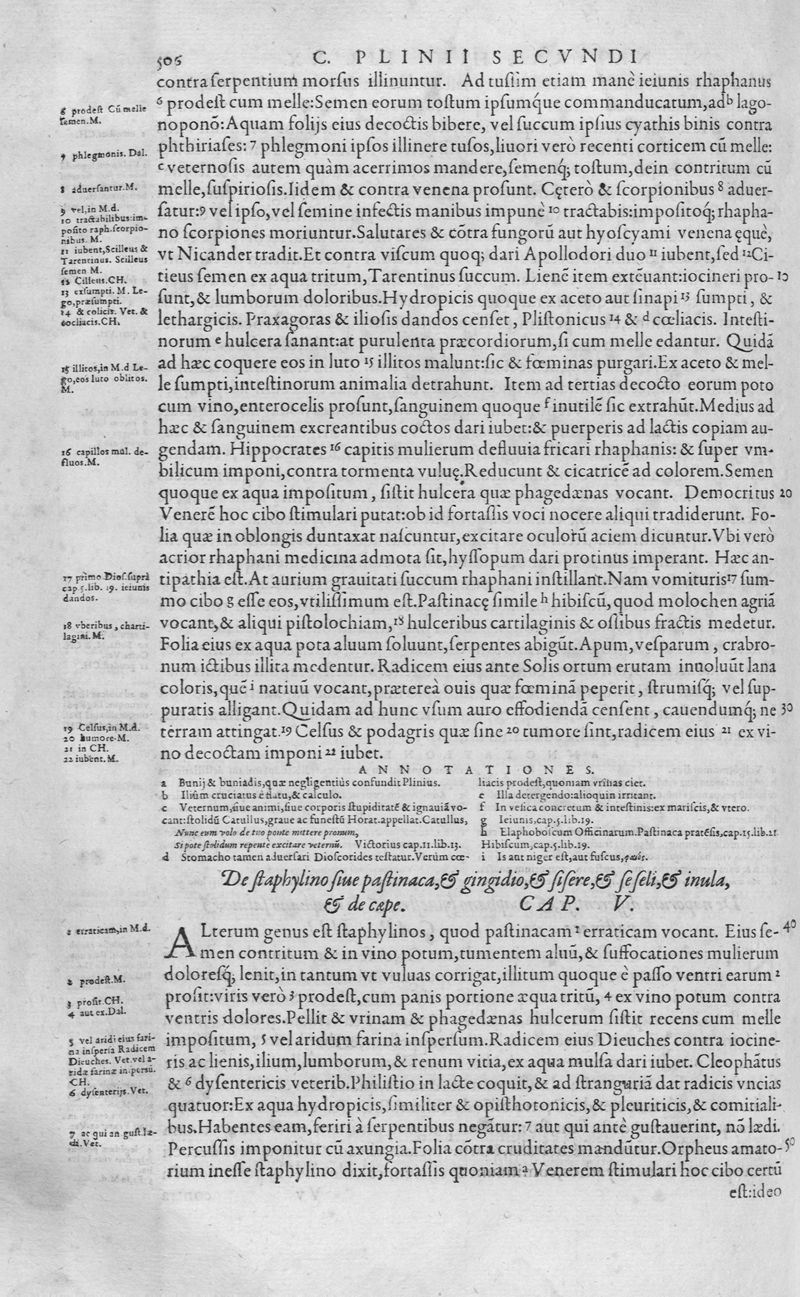 506
C. PLINII SECVNDI
contra ſerpentium morſus illinuntur. Ad tuſſim etiam manè ieiunis rhaphanus
⁶ prodeſt cum melle:Semen eorum toſtum ipſumq́ue commanducatum,adᵇ lago-
noponō:Aquam folijs eius decoctis bibere, vel ſuccum ipſius cyathis binis contra
phthiriaſes: ⁷ phlegmoni ipſos illinere tuſos,liuori verò recenti corticem cū melle:
ᶜ veternoſis autem quàm acerrimos mandere,ſemenq́; toſtum,dein contritum cū
melle,ſuſpirioſis.Iidem & contra venena proſunt. Cęterò & ſcorpionibus ⁸ aduer-
ſatur:⁹ vel ipſo,vel ſemine infectis manibus impunè ¹⁰ tractabis:impoſitoq́; rhapha-
no ſcorpiones moriuntur.Salutares & cōtra fungorū aut hyoſcyami venena ęquè,
vt Nicander tradit.Et contra viſcum quoq; dari Apollodori duo ¹¹ iubent,ſed ¹²Ci-
tieus ſemen ex aqua tritum,Tarentinus ſuccum. Lienē item extēuant:iocineri pro-
10
ſunt,& lumborum doloribus.Hydropicis quoque ex aceto aut ſinapi ¹³ ſumpti, &
lethargicis. Praxagoras & ilioſis dandos cenſet, Pliſtonicus ¹⁴ & ᵈ cœliacis. Inteſti-
norum ᵉ hulcera ſanant:at purulenta præcordiorum,ſi cum melle edantur. Quidā
ad hæc coquere eos in luto ¹⁵ illitos malunt:ſic & fœminas purgari.Ex aceto & mel-
le ſumpti,inteſtinorum animalia detrahunt. Item ad tertias decocto eorum poto
cum vino,enterocelis proſunt,ſanguinem quoque ᶠ inutilē ſic extrahūt.Medius ad
hæc & ſanguinem excreantibus coctos dari iubet:& puerperis ad lactis copiam au-
gendam. Hippocrates ¹⁶ capitis mulierum defluuia fricari rhaphanis: & ſuper vm-
bilicum imponi,contra tormenta vuluę.Reducunt & cicatricē ad colorem.Semen
quoque ex aqua impoſitum, ſiſtit hulcera quæ phagedænas vocant. Democritus
20
Venerē hoc cibo ſtimulari putat:ob id fortaſſis voci nocere aliqui tradiderunt. Fo-
lia quæ in oblongis duntaxat naſcuntur,excitare oculorū aciem dicuntur.Vbi verò
acrior rhaphani medicina admota ſit,hyſſopum dari protinus imperant. Hæc an-
tipathia eſt.At aurium grauitati ſuccum rhaphani inſtillant.Nam vomituris¹⁷ ſum-
mo cibo g eſſe eos,vtiliſſimum eſt.Paſtinacę ſimile ʰ hibiſcū,quod molochen agriā
vocant,& aliqui piſtolochiam,¹⁸ hulceribus cartilaginis & oſſibus fractis medetur.
Folia eius ex aqua pota aluum ſoluunt,ſerpentes abigūt.Apum,veſparum, crabro-
num ictibus illita medentur. Radicem eius ante Solis ortum erutam inuoluūt lana
coloris,quē ⁱ natiuū vocant,præterea ouis quæ fœminā peperit, ſtrumiſq́; vel ſup-
puratis alligant.Quidam ad hunc vſum auro effodiendā cenſent, cauendumq́; ne
30
terram attingat.¹⁹ Celſus & podagris quæ ſine ²⁰ tumore ſint,radicem eius ²¹ ex vi-
no decoctam imponi ²² iubet.
6 prodeſt Cū melle
ſemen.M.
7 phlegmonis. Dal.
8 aduerſantur.M.
9 vel,in M.d.
10 tractabilibus:im-
poſito raph.ſcorpio-
nibus. M.
11 iubent,Scilleus &
Tarentinus. Scilleus
ſemen M.
12 Cilleus.CH.
13 exſumpti. M. Le-
go,præſumpti.
14 & colicis. Vet. &
cocliacis.CH.
15 illitos,in M.d Le-
go,eos luto oblitos.
M.
16 capillos mul. de-
fluos.M.
17 primo.Dioſ.ſuprà
cap.5.lib. 19. ieiunis
dandos.
18 vberibus, charti-
lagini.M.
19 Celſus,in M.d.
20 humore.M.
21 in CH.
22 iubent.M.
ANNOTATIONES.
a Bunij & buniadis,quæ negligentiùs confundit Plinius.
b Ilium cruciatus è flatu,& calculo.
c Veternum,ſiue animi,ſiue corporis ſtupiditatē & ignauiā vo-
cant:ſtolidū Catullus,graue ac funeſtū Horat.appellat.Catullus,
Nunc eum volo de tuo ponte mittere pronum,
Si pote ſtolidum repente excitare veternū. Victorius cap.11.lib.13.
d Stomacho tamen aduerſari Dioſcorides teſtatur.Verùm cœ-
liacis prodeſt,quoniam vrinas ciet.
e Illa detergendo:alioquin irritant.
f In veſica concretum & inteſtinis:ex mariſcis,& vtero.
g Ieiunis,cap.5.lib.19.
h Elaphoboſcum Officinarum.Paſtinaca pratēſis,cap.15.lib.21.
Hibiſcum,cap.5.lib.19.
i Is aut niger eſt,aut fuſcus,φαιός.
De ſtaphylino ſiue paſtinaca,& gingidio,& ſiſere,& ſeſeli,& inula,
& de cæpe. CAP. V.
ALterum genus eſt ſtaphylinos, quod paſtinacam ¹ erraticam vocant. Eius ſe-
40
men contritum & in vino potum,tumentem aluū,& ſuffocationes mulierum
doloreſq́; lenit,in tantum vt vuluas corrigat,illitum quoque è paſſo ventri earum ²
proſit:viris verò ³ prodeſt,cum panis portione æqua tritū, ⁴ ex vino potum contra
ventris dolores.Pellit & vrinam & phagedænas hulcerum ſiſtit recens cum melle
impoſitum, ⁵ vel aridum farina inſperſum.Radicem eius Dieuches contra iocine-
ris ac lienis,ilium,lumborum,& renum vitia,ex aqua mulſa dari iubet. Cleophātus
& ⁶ dyſentericis veterib.Philiſtio in lacte coquit,& ad ſtranguriā dat radicis vncias
quatuor:Ex aqua hydropicis,ſimiliter & opiſthotonicis,& pleuriticis,& comitiali-
bus.Habentes eam,feriri à ſerpentibus negātur: ⁷ aut qui antè guſtauerint, nō lædi.
Percuſſis imponitur cū axungia.Folia cōtra cruditates mandūtur.Orpheus amato-
50
rium ineſſe ſtaphylino dixit,fortaſſis quoniam ᵃ Venerem ſtimulari hoc cibo certū
eſt:ideo
1 erraticam,in M.d.
2 prodeſt.M.
3 proſit.CH.
4 aut ex.Dal.
5 vel aridi eius fari-
na inſperſa Radicem
Dieuches. Vet.vel a-
ridæ farinæ inperſū.
CH.
6 dyſenterijs.Vet.
7 ac qui an guſt.læ-
di.Vet.